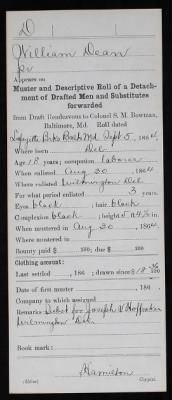 D
William Dean
Pv
Appears on
Muster and Descriptive Roll of a Detachment of Drafted Men and Substitutes
forwarded
from Draft Rendezvous to Colonel S. M. Bowman,
Baltimore, Md. Roll dated
Lafayette Bks Balto Md Sept 5, 1864.
Where born Del
Age 18 years; occupation laborer
When enlisted Aug 30, 186
Where enlisted Wilmington Del
For what period enlisted 3 years.
Eyes black; hair black
Complexion black; height 5 ft 4 in.
When mustered in Aug 30, 186
Where mustered in
Bounty paid $ 100; due $ 100
Clothing account:
Last settled , 186 ; drawn since $ 100
Date of first muster , 186
Company to which assigned
Remarks: Subst for Joseph V Hoffecker
Wilmington Del
Book mark:
Hamilton
Copyist.